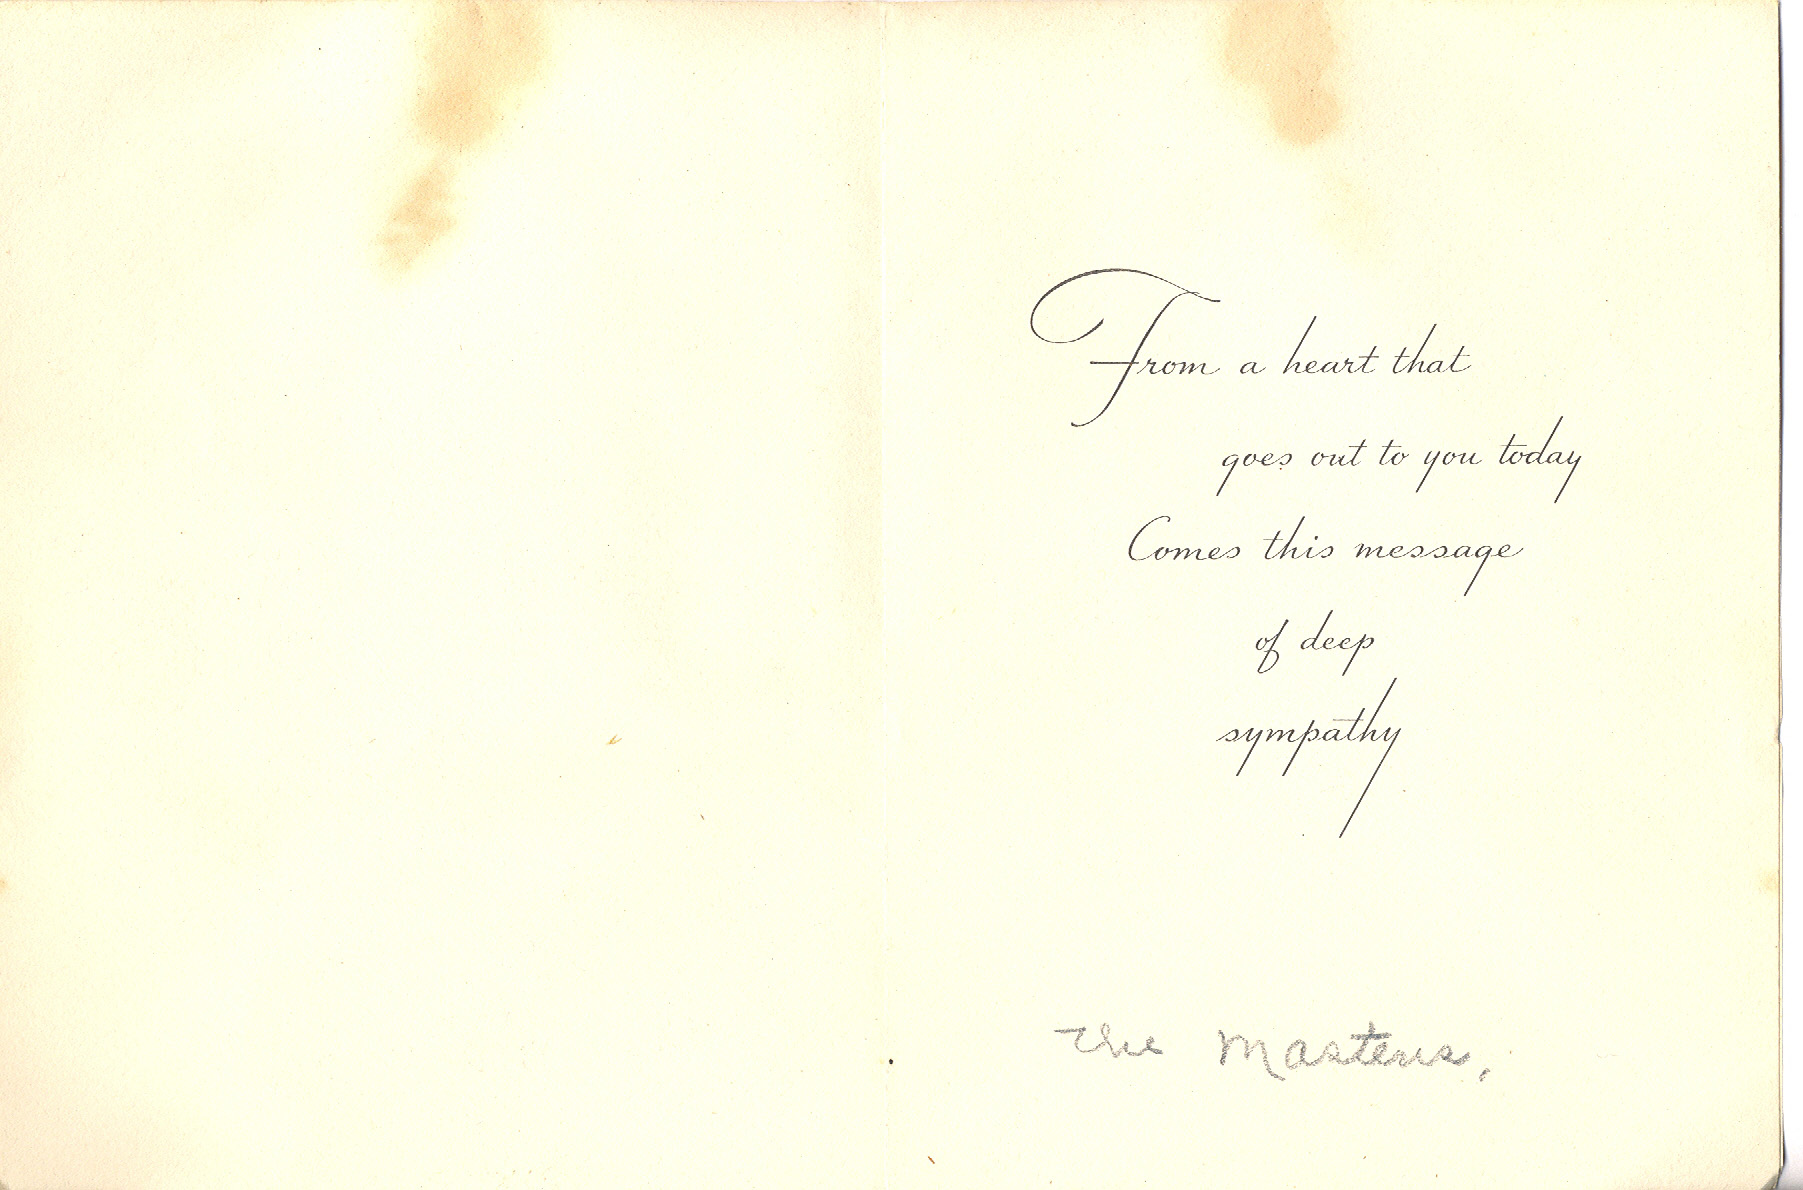 From a heart that
goes out to you today
Comes this message
of deep
sympathy
The Masters,